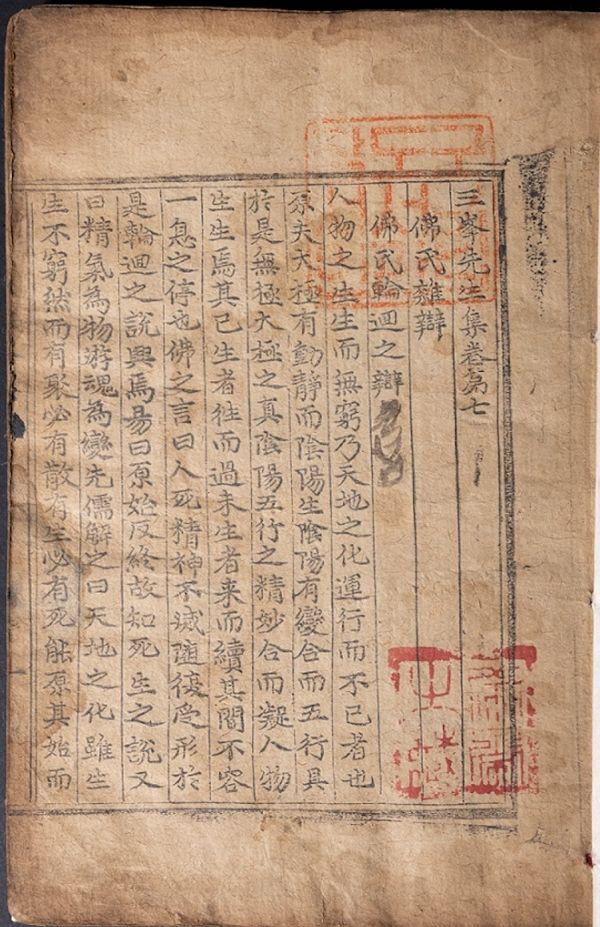 三峯先生集卷第七
佛氏雜辯
佛氏輪迴之辯
人物之生生而無窮乃天地之化運行而不已者也
原夫大極有動靜而陰陽生陰陽有變合而五行具
於是無極大極之真陰陽五行之精妙合而凝人物
生生焉其已生者徃而過未生者来而續其間不容
一息之停也佛之言曰人死精神不滅隨復受形於
是輪迴之說興焉易曰原始反終故知死生之說又
曰精氣為物游魂為變先儒解之曰天地之化雖生
生不窮然而有聚必有散有生必有死能原其始而